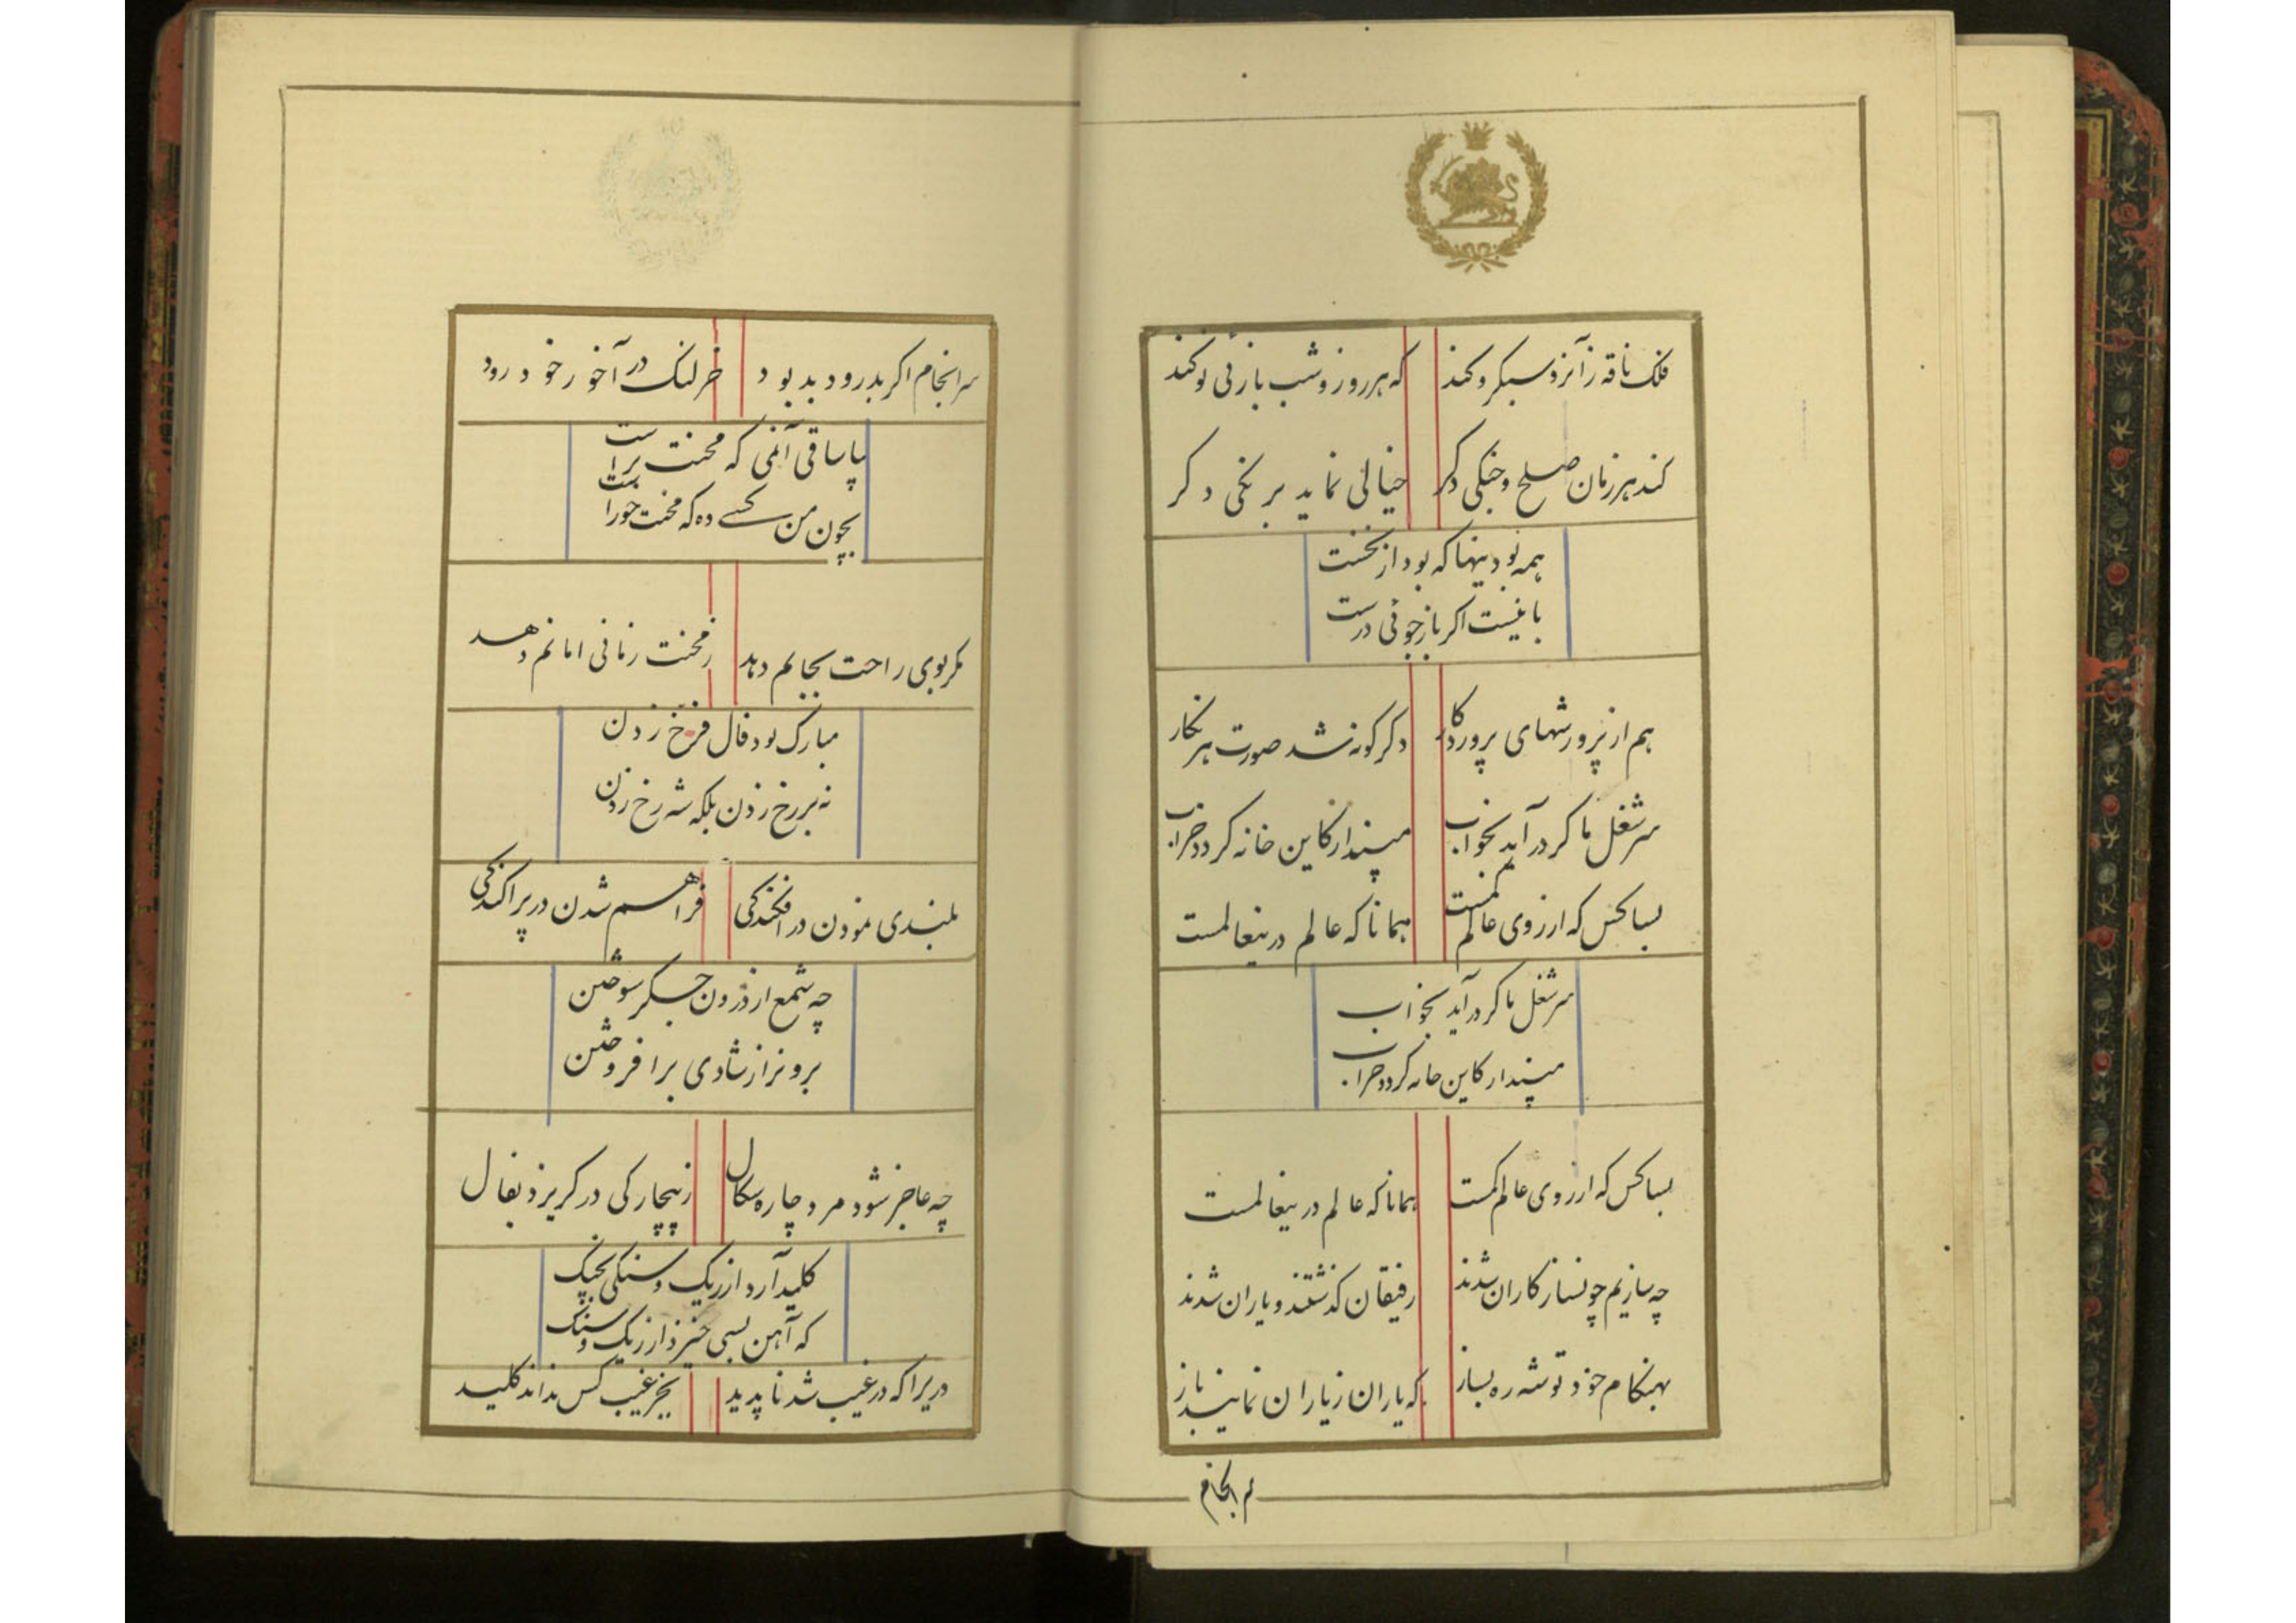 فلک ناقه زآنرو سبکرو کند که هر روز و شب بازئی نو کند
کند هر زمان صلح و جنکی دکر خیالی نماید برنکی دکر
همه بود بینها که بود از نخست
با نیست اکر بازجوئی درست
هم از پرورشهای پروردکار دکرکونه شد صورت هر نکار
سر شغل ما کر درآید بخواب مپندار کاین خانه کردد خراب
بسا کس که از روی عالم کمست همانا که عالم در ینعالمست
سر شغل ما کر درآید بخواب
مپندار کاین خانه کردد خراب
بسا کس که از روی عالم کمست همانا که عالم در ینعالمست
چه سازیم چونساز کاران شدند رفیقان کذشتند و یاران شدند
بهنکام خود توشه ره بساز که یاران زیاران نمایند باز
سرانجام
سرانجام اکر بد رود بد بود خر لنک در آخور خود رود
بیا ساقی آنمی که محنت براست
بچون من کسی ده که محنت خوراست
مکر بوی راحت بجانم دهد ز محنت زمانی امانم دهد
مبارک بود فال فرخ زدن
نه بر رخ زدن بلکه شه رخ زدن
بلندی نمودن در افکندکی فراهم شدن در پراکندکی
چه شمع از درون جکر سوختن
برونرا ز شادی برافروختن
چه عاجز شود مرد چاره سکال ز بیچارکی در کریزد بفال
کلید آرد از ریک و سنکی بچنک
که آهن بسی خیزد از ریک و سنک
دریرا که در غیب شد ناپدید بجز غیب کس نداند کلید